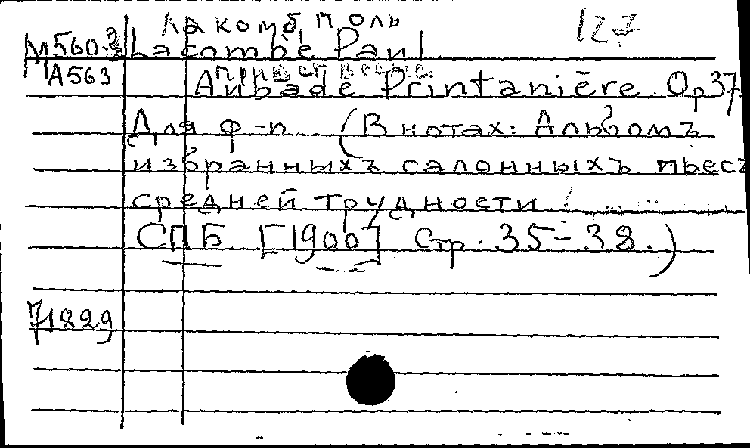 Лакомб Поль 127
М560.3 Lacombe Paul
А563 Привет весне.
Aubade Printanière. Op37
Для ф-п. (В нотах: Альбомъ
избранныхъ салонныхъ пьесъ
средней трудности
СПБ. [1900] Стр. 35-38.)
71829